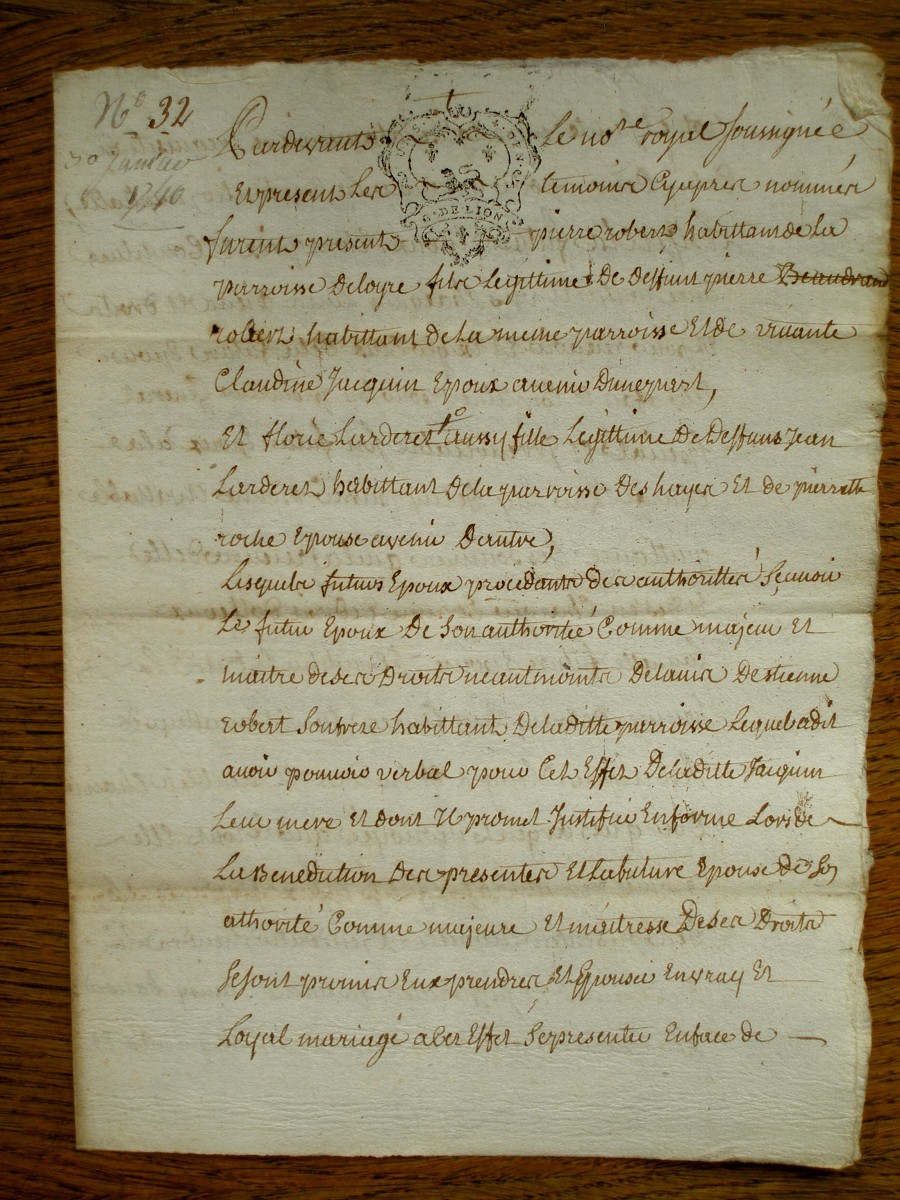 N.º 32
30 Janvier
1740
G. DE LION
Pardevant Le no.re royal soussignée
Et present Les temoins Cyapres nommés
furent present pierre robert habittant de La
parroisse deloyre fils Legittime de deffunt pierre Beaudrand
robert habittant de La meme parroisse Et de vivante
Claudine Jacquin Epoux avenir dunepart,
Et florie Larderet aussy fille Legittime de deffunt Jean
Larderet habittant dela parroisse des hayes Et de pierrette
roche Epouse avenir dautre,
Lesquels futurs Epoux procedants des authorittés sçavoir
Le futur Epoux de son authoritée Comme majeur Et
maitre deses Droits neantmoints delavis destienne
robert son frere habittant deladitte parroisse Lequel adit
avoir pouvoir verbal pour Cet Effet deladitte Jacquin
Leur mere Et dont Il promet Justifier Enforme Lors de
La Benediction des presentes Et Lafuture Epouse de son
athorité Comme majeure Et maitresse deses Droits
sesont promis Eux prendres Et Epouser Envray Et
Loyal mariage acet Effet sepresenter Enface de